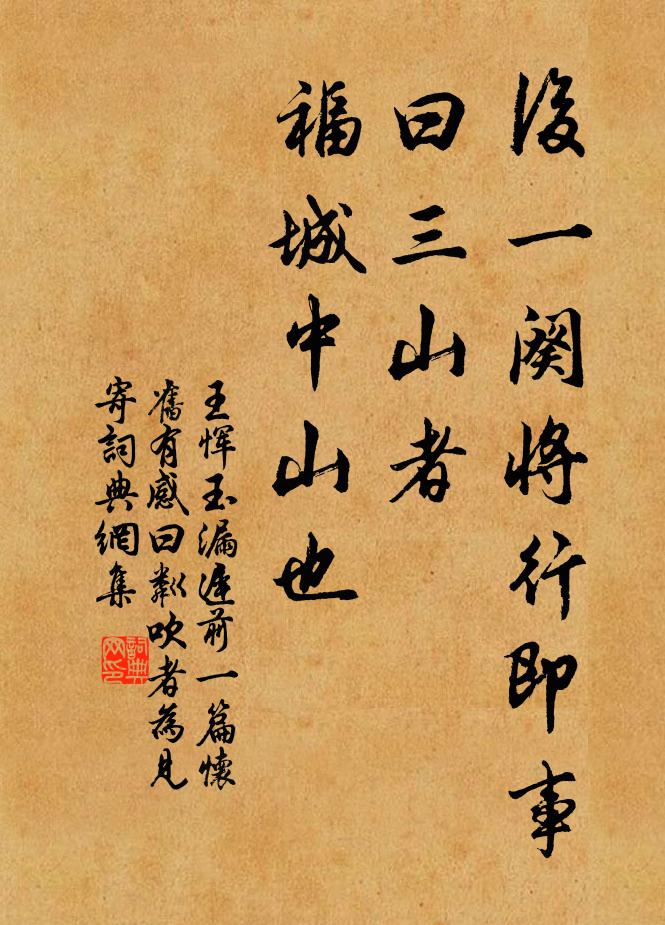 後一闋將行即事
曰三山者
福城中山也
王惲玉漏遲前一篇懷
舊有感曰鄰吹者為見
寄詞典網集
詞典
网印